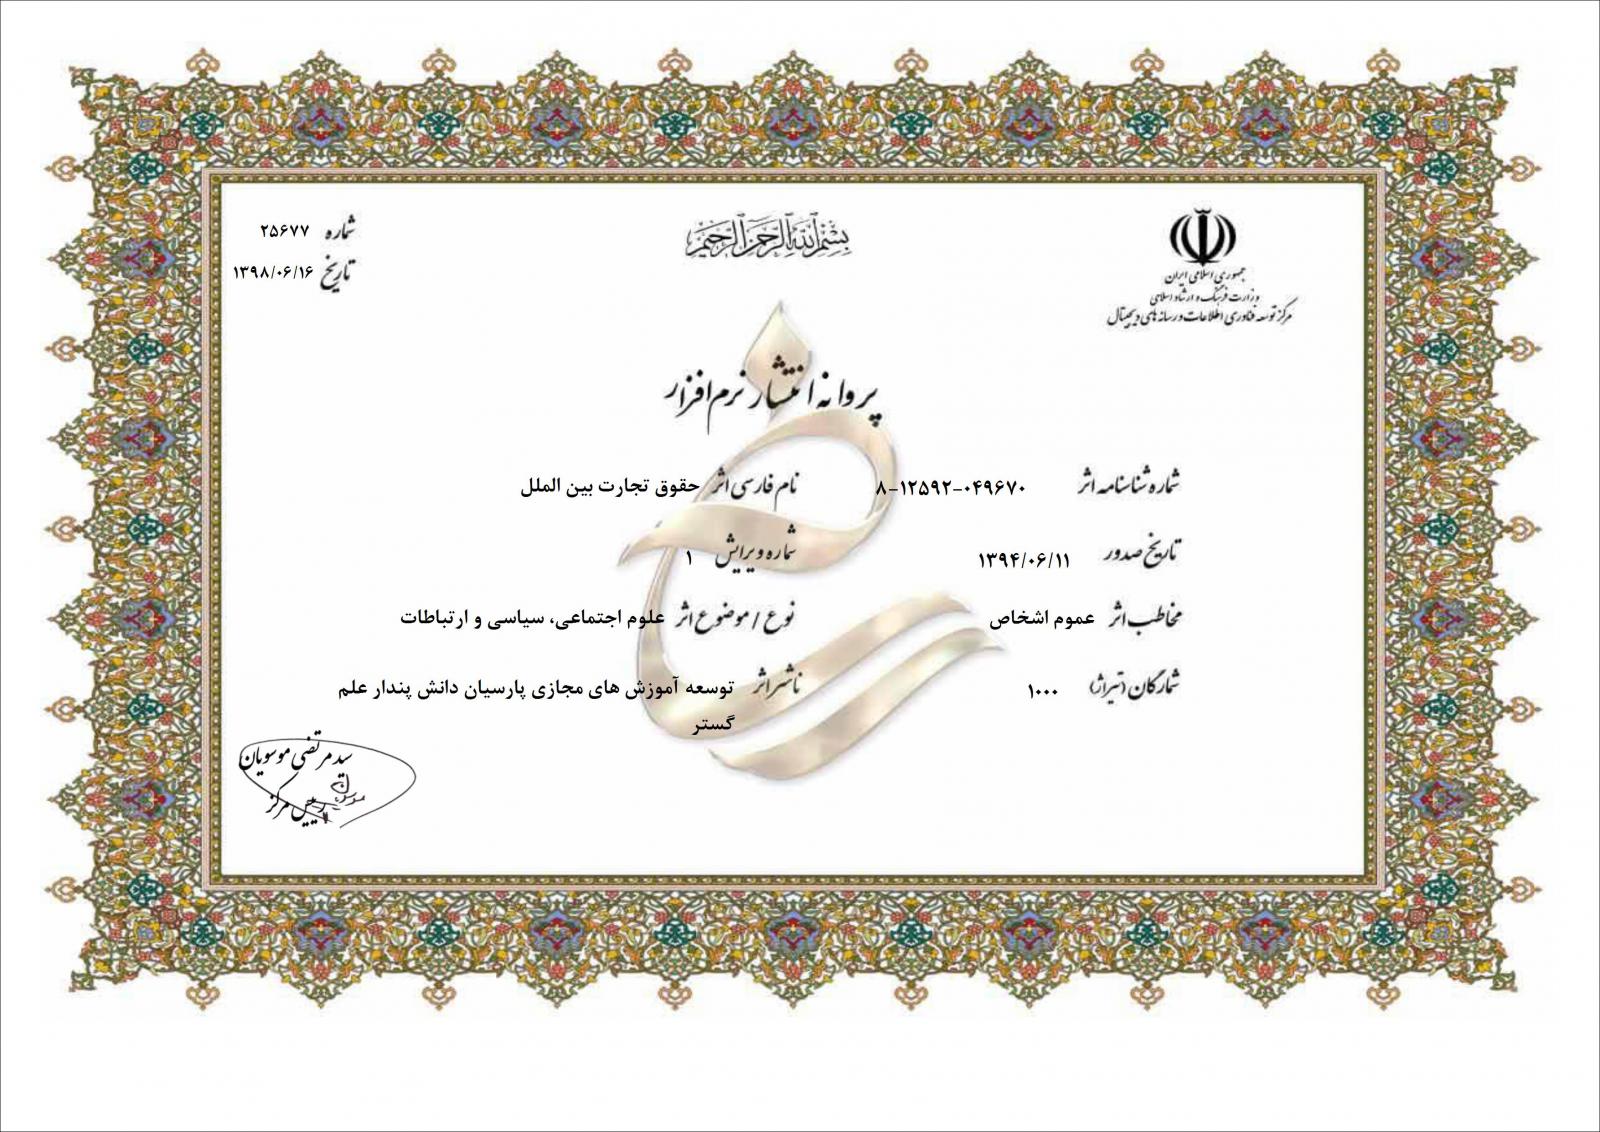 بسم الله الرحمن الرحیم
جمهوری اسلامی ایران
وزارت فرهنگ و ارشاد اسلامی
مرکز توسعه فناوری اطلاعات و رسانه های دیجیتال
شماره ۲۵۶۷۷
تاریخ ۱۳۹۸/۰۶/۱۶
پروانه انتشار نرم افزار
شماره شناسنامه اثر ۸-۱۲۵۹۲-۰۴۹۶۷۰ نام فارسی اثر حقوق تجارت بین الملل
تاریخ صدور ۱۳۹۴/۰۶/۱۱ شماره ویرایش ۱
مخاطب اثر عموم اشخاص نوع / موضوع اثر علوم اجتماعی، سیاسی و ارتباطات
شمارگان (تیراژ) ۱۰۰۰ ناشر اثر توسعه آموزش های مجازی پارسیان دانش پندار علم
گستر
سید مرتضی موسویان
رییس مرکز